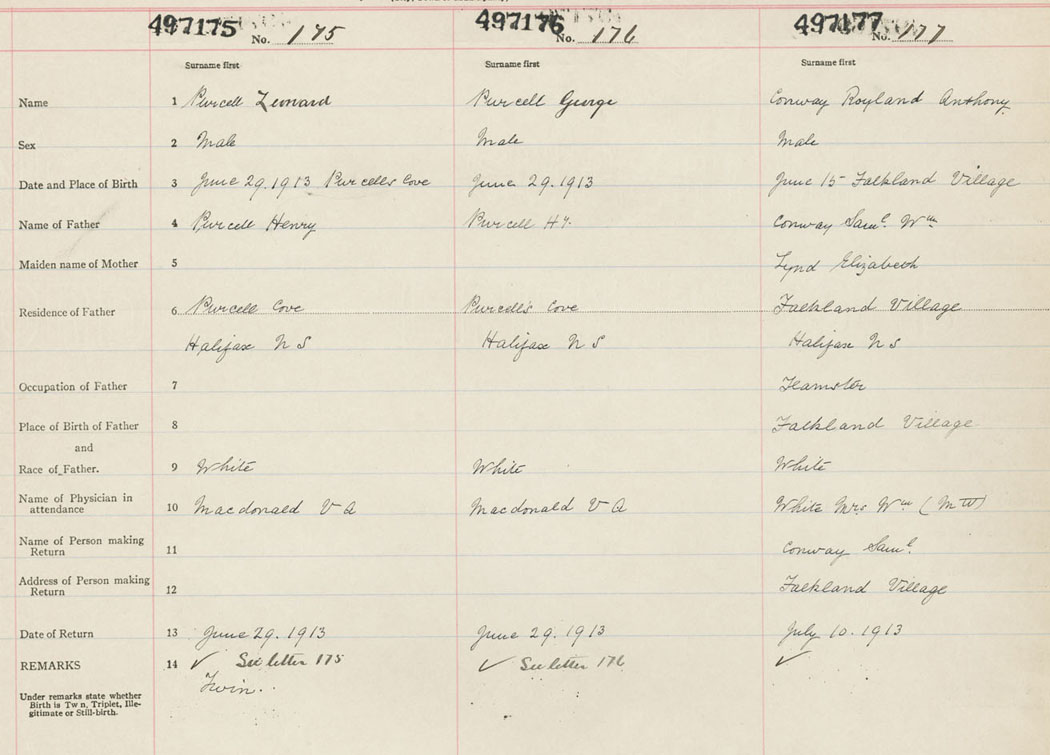 497175 No. 175 497176 No. 176 497177 No. 177
Surname first Surname first Surname first
Name 1 Purcell Leonard Purcell George Conway Royland Anthony
Sex 2 Male Male Male
Date and Place of Birth 3 June 29. 1913 Purcells Cove June 29. 1913 June 15 Falkland Village
Name of Father 4 Purcell Henry Purcell Hy. Conway Saml. Wm
Maiden name of Mother 5 Lynd Elizabeth
Residence of Father 6 Purcell Cove Purcell's Cove Falkland Village
Halifax N S Halifax N S Halifax N S
Occupation of Father 7 Teamster
Place of Birth of Father 8 Falkland Village
and
Race of Father. 9 White White White
Name of Physician in
attendance 10 Macdonald V A Macdonald V A White Mrs Wm (MW)
Name of Person making
Return 11 Conway Saml.
Address of Person making
Return 12 Falkland Village
Date of Return 13 June 29. 1913 June 29. 1913 July 10. 1913
REMARKS 14 ✓ See letter 175 ✓ See letter 176 ✓
Twin.
Under remarks state whether
Birth is Tw n, Triplet, Ille-
gitimate or Still-birth.